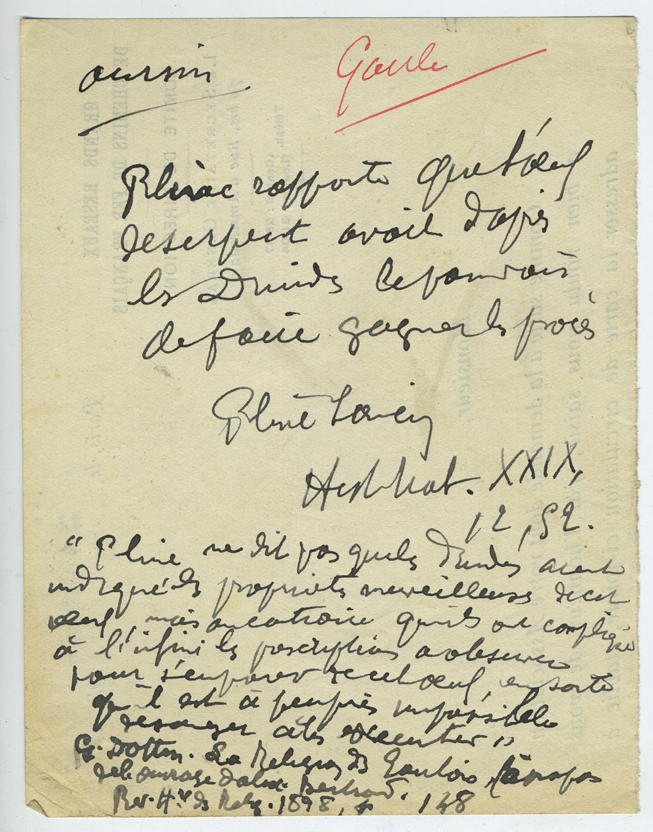 oursin Gaule
Pline rapporte que l'œuf
de serpent avait d'après
les Druides le pouvoir
de faire gagner les procès
Pline l'ancien
Hist Nat. XXIX,
12, 52.
"Pline ne dit pas que les Druides aient
indiqué les propriétés merveilleuses de cet
œuf, mais au contraire qu'ils ont compliqué
à l'infini les prescriptions à observer
pour s'emparer de cet œuf, en sorte
qu'il est à peu près impossible
de songer à les exécuter"
G. Dottin. La Religion des Gaulois, à propos
de l'ouvrage d'Alex. Bertrand.
Rev. Hre des Relig. 1898, 148